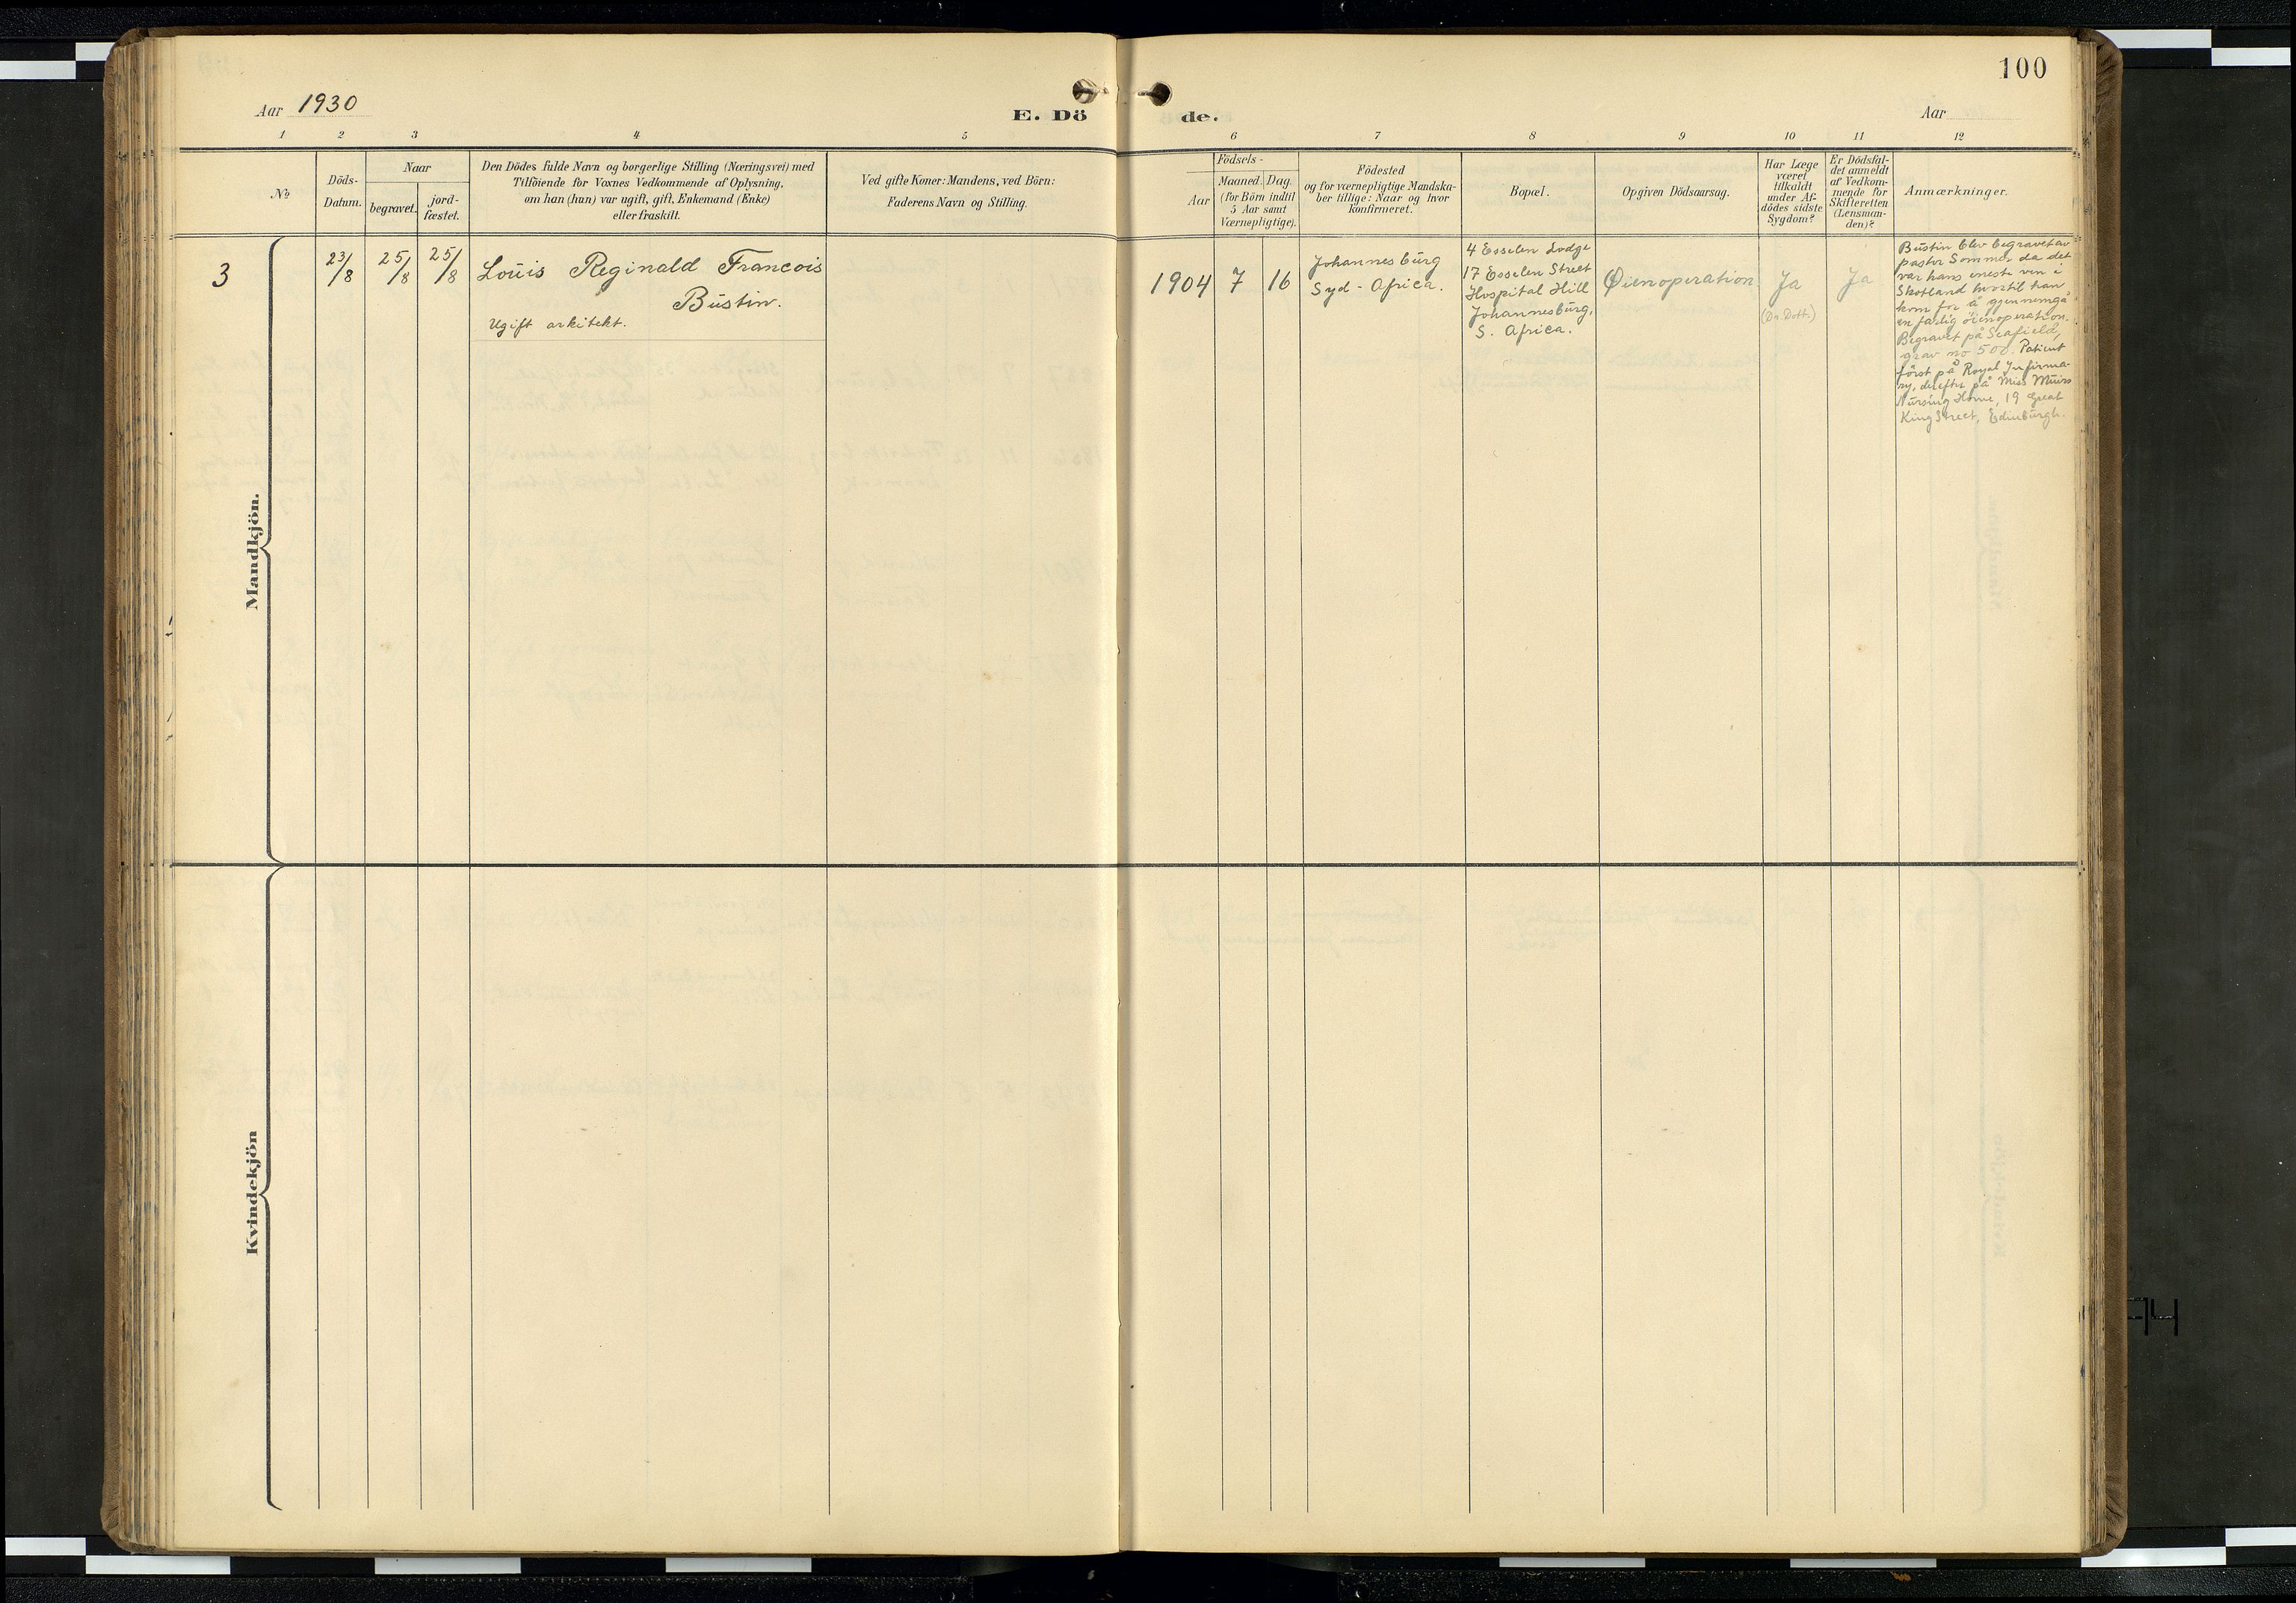 100
Aar 1930
E. Dö
de.
Aar
1 2 3 4 5 6 7 8 9 10 11 12
No
Döds-
Datum.
Naar
begravet.
jord-
fæstet.
Den Dödes fulde Navn og borgerlige Stilling (Næringsvei) med
Tilföiende for Voxnes Vedkommende af Oplysning.
om han (hun) var ugift, gift, Enkemand (Enke)
eller fraskilt.
Ved gifte Koner: Mandens, ved Börn:
Faderens Navn og Stilling.
Födsels-
Aar
Maaned. Dag.
(for Börn indtil
5 Aar samt
Værnepligtige).
Födested
og for værnepligtige Mandska-
ber tillige: Naar og hvor
konfirmeret.
Bopæl.
Opgiven Dödsaarsag.
Har Læge
været
tilkaldt
under Af-
dödes sidste
Sygdom?
Er Dödsfal-
det anmeldt
af Vedkom-
mende for
Skifteretten
(Lensman-
den)?
Anmærkninger.
Mandkjön.
3
23/8
25/8
25/8
Louis Reginald Francois
Bustin.
Ugift arkitekt.
1904
7
16
Johannesburg
Syd-Africa.
4 Esselen Lodge
17 Esselen Street
Hospital Hill
Johannesburg,
S. Africa.
Øienoperation
Ja
Ja
Bustin blev begravet av
pastor Sommer da det
var hans eneste ven i
Skotland hvortil han
kom for å gjennemgå
en farlig öienoperation.
Begravet på Seafield,
grav no 500. Patient
först på Royal Infirma-
ry, derefter på Miss Muirs
Nursing Home, 19 Great
King Street, Edinburgh.
Kvindekjön